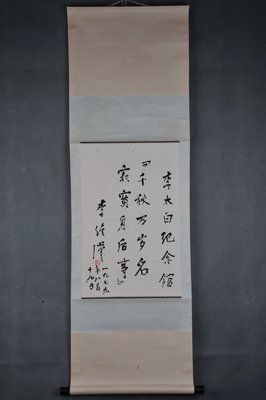 李太白纪念馆
「千秋万岁名
寂寞身后事」
李维汉
一九七九
年八月
十九日